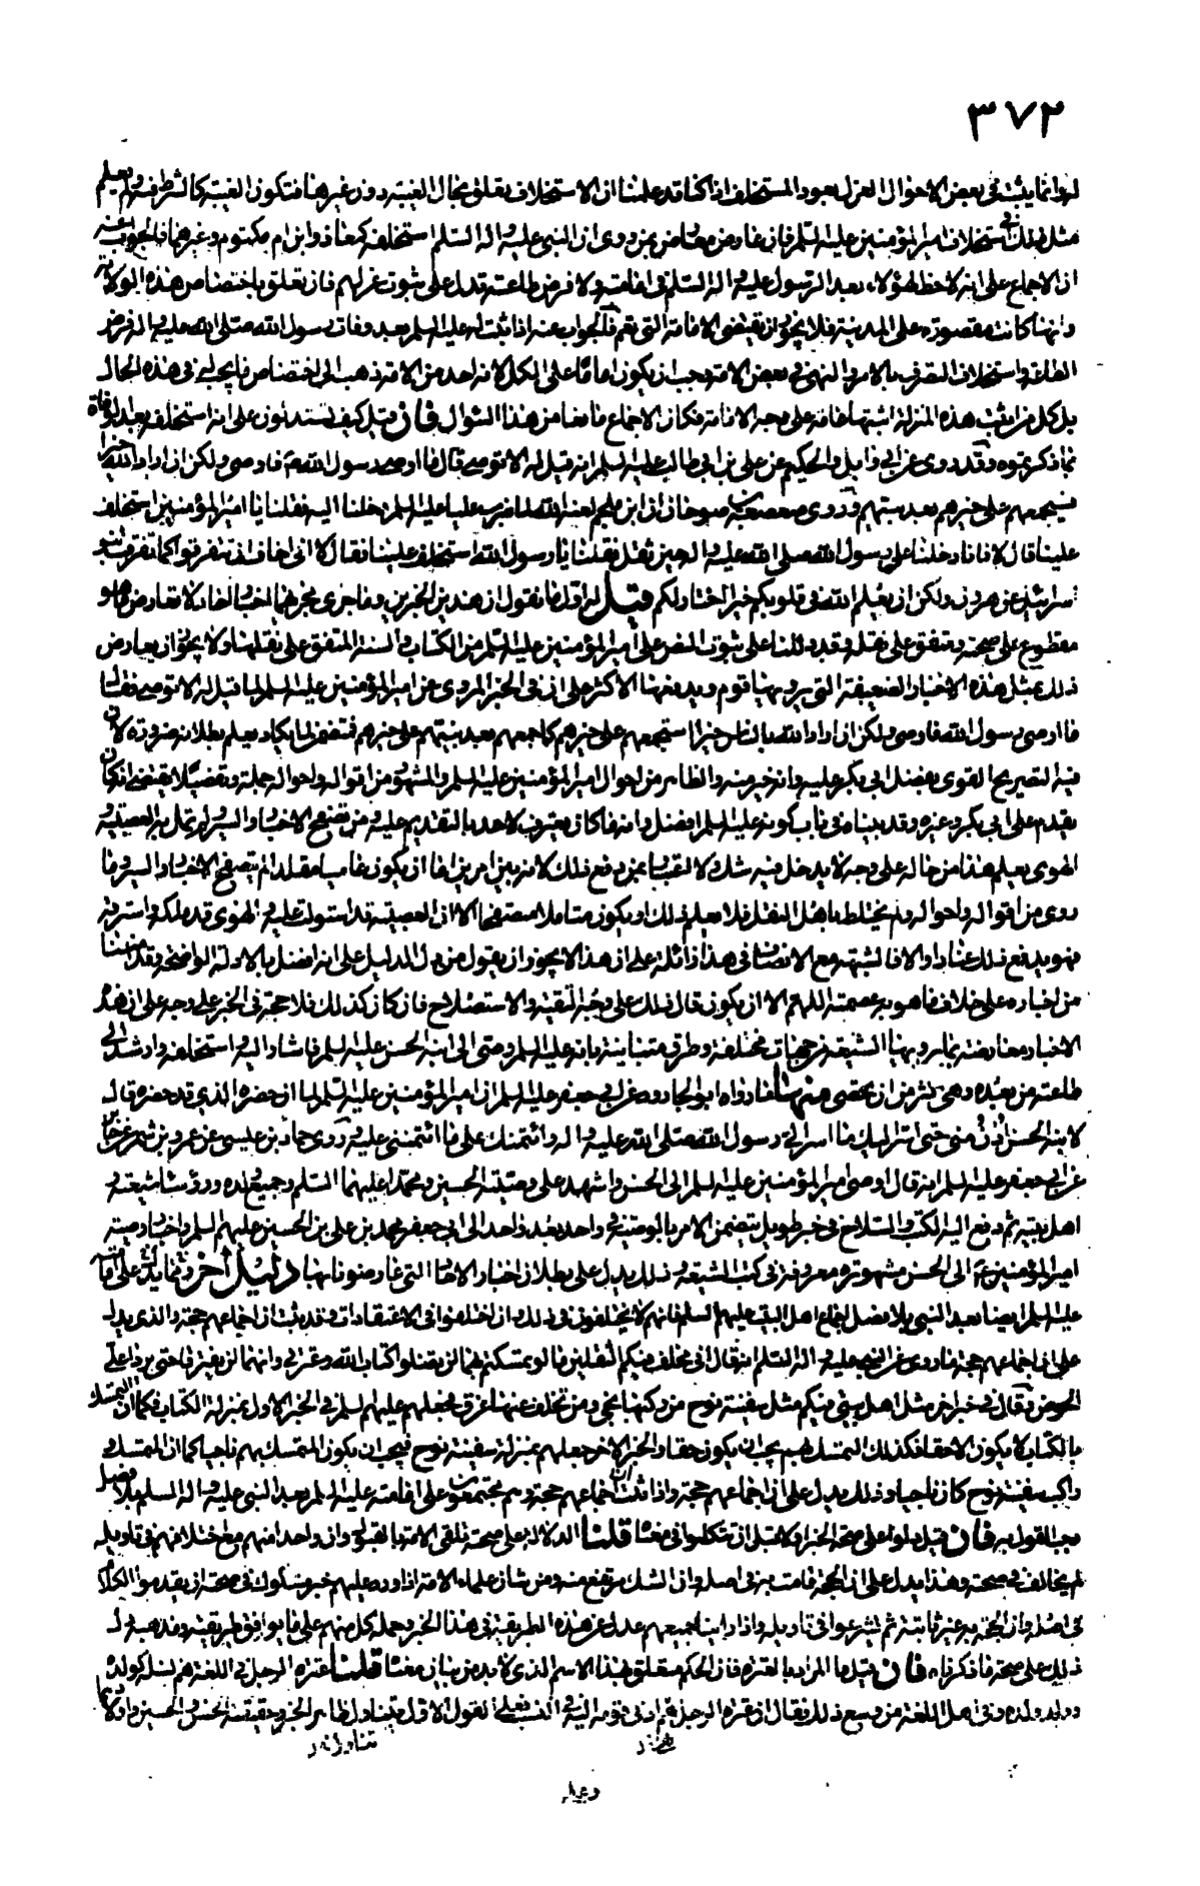 ٣٧٢
لها وانما يثبت في بعض الاحوال العزل بعود المستخلف اذا كنا قد علمنا ان الاستخلاف تعلق بحال الغيبة دون غيرها فتكون الغيبة كالشرط فيه ولم يعلم
مثل ذلك في استخلاف امير المؤمنين عليه السلم فان عارض معارض بمن روى ان النبي عليه واله السلم استخلفه كمعاذ وابن ام مكتوم وغيرهما فالجواب عنه
ان الاجماع على انه لا حظ لهؤلاء بعد الرسول عليه واله السلم في امامة ولا فرض طاعة يدل على ثبوت عزلهم فان تعلق باختصاص هذه الولاية
وانها كانت مقصورة على المدينة فلا يجوز ان يقتضي الامامة التي تعم فالجواب عنه اذا ثبت له عليه السلم بعد وفات رسول الله صلى الله عليه واله فرض
الطاعة واستحقاق التصرف بالامر والنهي في بعض الامة وجب ان يكون اماما على الكل لانه لا احد من الامة ذهب الى اختصاص ما يجب له في هذه الحال
بل كل من اثبت هذه المنزلة اثبتها عامة على وجه الامامة فكان الاجماع مانعا من هذا السؤال فان قيل كيف تستدلون على انه استخلفه بعد الوفاة
بما ذكرتموه وقد روى عن ابي وايل والحكيم عن علي بن ابي طالب عليه السلم انه قيل له الا توصي قال ما اوصى رسول الله ص فاوصي ولكن ان اراد الله خيرا
فسيجمعهم على خيرهم بعد نبيهم وروى صعصعة بن صوحان ان ابن ملجم لعنه الله لما ضرب عليا عليه السلم دخلنا اليه فقلنا يا امير المؤمنين استخلف
علينا قال لا فانا دخلنا على رسول الله صلى الله عليه واله حين ثقل فقلنا يا رسول الله استخلف علينا فقال لا اني اخاف ان تتفرقوا كما تفرقت بنو
اسرائيل عن هرون ولكن ان يعلم الله في قلوبكم خيرا اختار لكم قيل له اول ما نقول ان هذين الخبرين وما جرى مجراهما اخبار احاد لا تعارض ما هو
مقطوع على صحته ومتفق على نقله وقد دللنا على ثبوت النص على امير المؤمنين عليه السلم من الكتاب والسنة المتفق على نقلها ولا يجوز ان يعارض
ذلك بمثل هذه الاخبار الضعيفة التي يرويها قوم ويدفعها الاكثر على ان في الخبر المروي عن امير المؤمنين عليه السلم لما قيل له الا توصي فقال
ما اوصى رسول الله فاوصي ولكن ان اراد الله بالناس خيرا استجمعهم على خيرهم كما جمعهم بعد نبيهم على خيرهم فتضمن لما يكاد يعلم بطلانه ضرورة لان
فيه التصريح القوي بفضل ابي بكر عليه وانه خير منه والظاهر من احوال امير المؤمنين عليه السلم والمشهور من اقواله واحواله جملة وتفصيلا يقتضي انه كان
يقدم على ابي بكر وغيره وقد بيناه في باب كونه عليه السلم افضل وانه ما كان يعترف لاحد بالتقديم عليه ومن تصفح الاخبار والسير ولم تمل به العصبية و
الهوى يعلم هذا من حاله على وجه لا يدخل فيه شك ولا اعتبار بمن دفع ذلك لانه بين امرين اما ان يكون عاميا مقلدا لم يتصفح الاخبار والسير وما
روي من اقواله واحواله ولم يختلط باهل النقل فلا يعلم ذلك او يكون متاملا متصفحا الا ان العصبية قد استولت عليه والهوى قد ملكه واسترقه
فهو يدفع ذلك عنادا والا فالشبهة مع الانصاف في هذا زائلة على ان هذا لا يجوز ان يقول من دل الدليل على انه افضل بالادلة الواضحة وقد امننا
من اخباره على خلاف ما هو به عصمته اللهم الا ان يكون قال ذلك على وجه التقية والاستصلاح فان كان كذلك فلا حجة في الخبر على وجه على ان هذه
الاخبار معارضة بما يرويها الشيعة من جهات مختلفة وطرق متباينة بانه عليه السلم وصى الى ابنه الحسن عليه السلم فاشار اليه واستخلفه وارشد الى
طاعته من بعده وهي اكثر من ان تحصى منها ما رواه ابو الجارود عن ابي جعفر عليه السلم ان امير المؤمنين عليه السلم لما ان حضره الذي قد حضره قال
لابنه الحسن ادن مني حتى اسر اليك ما اسر الي رسول الله صلى الله عليه واله وائتمنك على ما ائتمنني عليه وروى حماد بن عيسى عن عمرو بن شمر عن جابر
عن ابي جعفر عليه السلم انه قال اوصى امير المؤمنين عليه السلم الى الحسن واشهد على وصيته الحسين ومحمدا عليهما السلم وجميع ولده ورؤساء شيعته و
اهل بيته ثم دفع اليه الكتب والسلاح في خبر طويل يتضمن الامر بالوصية في واحد بعد واحد الى ابي جعفر محمد بن علي بن الحسين عليهم السلم واخبار وصية
امير المؤمنين ع الى الحسن مشهورة معروفة في كتب الشيعة وذلك يدل على بطلان اخبار الاحاد التي عارضونا بها دليل اخر ومما يدل على امامته
عليه السلم ايضا بعد النبي بلا فصل اجماع اهل البيت عليهم السلم فانهم لا يختلفون في ذلك وان اختلفوا في الاعتقادات وقد ثبت ان اجماعهم حجة والذي يدل
على ان اجماعهم حجة ما روي عن النبي عليه واله السلم انه قال اني مخلف فيكم الثقلين ما لو تمسكتم بهما لن تضلوا كتاب الله وعترتي وانهما لن يفترقا حتى يردا علي
الحوض وقال في خبر اخر مثل اهل بيتي فيكم مثل سفينة نوح من ركبها نجى ومن تخلف عنها غرق فجعلهم عليهم السلم في الخبر الاول بمنزلة الكتاب فكما ان التمسك
بالكتاب لا يكون الا حقا فكذلك التمسك بهم يجب ان يكون حقا والخبر الاخر جعلهم بمنزلة سفينة نوح فيجب ان يكون المتمسك بهم ناجيا كما ان المتمسك و
راكب سفينة نوح كان ناجيا وذلك يدل على ان اجماعهم حجة واذا ثبت ان اجماعهم حجة وهم مجتمعون على امامته عليه السلم بعد النبي عليه واله السلم بلا فصل
وجب القول به فان قيل دلوا على صحة الخبر اولا قبل ان تتكلموا في معناه قلنا الدلالة على صحته تلقي الامة بالقبول وان واحدا منهم مع اختلافهم في تاويله
لم يخالف في صحته وهذا يدل على ان الحجة قامت به في اصله وان الشك مرتفع منه ومن شان علماء الامة اذا ورد عليهم خبر مشكوك في صحته ان يقدموا الكلام
في اصله وان الحجة به غير ثابتة ثم يشرعوا في تاويله واذا راينا جميعهم عدل عن هذه الطريقة في هذا الخبر وحمله كل منهم على ما يوافق طريقته ومذهبه دل
ذلك على صحة ما ذكرناه فان قيل ما المراد بالعترة فان الحكم متعلق بهذا الاسم الذي لا بد من بيان معناه قلنا عترة الرجل في اللغة هم نسله كولده
وولد ولده وفي اهل اللغة من وسع ذلك فقال ان عترة الرجل هم ادنى قومه اليه في النسب فعلى القول الاول يتناول ظاهر الخبر وحقيقته الحسن والحسين واولادهما